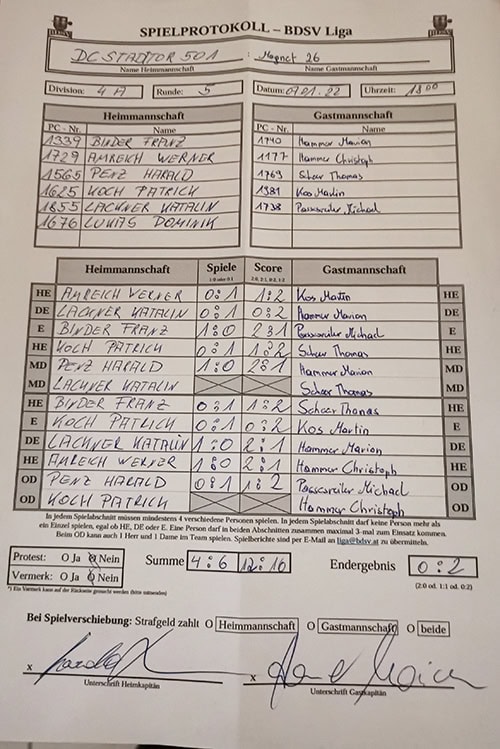 SPIELPROTOKOLL – BDSV Liga
DC STADTTOR 501 : Magnet 26
Name Heimmannschaft Name Gastmannschaft
Division: 4 A Runde: 5 Datum: 07.01.22 Uhrzeit: 18 00
Heimmannschaft Gastmannschaft
PC - Nr. Name PC - Nr. Name
1339 BINDER FRANZ 1740 Hammer Marion
1729 AMREICH WERNER 1177 Hammer Christoph
1565 PENZ HARALD 1769 Scheer Thomas
1625 KOCH PATRICK 1381 Kos Martin
1855 LACKNER KATALIN 1738 Michael
1676 LUKAS DOMINIK
Heimmannschaft Spiele Score Gastmannschaft
1:0 oder 0:1 2:0, 2:1, 0:2, 1:2
HE AMREICH WERNER 0:1 1:2 Kos Martin HE
DE LACKNER KATALIN 0:1 0:2 Hammer Marion DE
E BINDER FRANZ 1:0 2:1 Michael E
HE KOCH PATRICK 0:1 1:2 Scheer Thomas HE
MD PENZ HARALD 1:0 2:1 Hammer Marion MD
MD LACKNER KATALIN Scheer Thomas MD
HE BINDER FRANZ 0:1 1:2 Scheer Thomas HE
E KOCH PATRICK 0:1 0:2 Kos Martin E
DE LACKNER KATALIN 1:0 2:1 Hammer Marion DE
HE AMREICH WERNER 1:0 2:1 Hammer Christoph HE
OD PENZ HARALD 0:1 1:2 Michael OD
OD KOCH PATRICK Hammer Christoph OD
In jedem Spielabschnitt müssen mindestens 4 verschiedene Personen spielen. In jedem Spielabschnitt darf keine Person mehr als
ein Einzel spielen, egal ob HE, DE oder E. Eine Person darf in beiden Abschnitten zusammen maximal 3-mal zum Einsatz kommen.
Beim OD kann auch 1 Herr und 1 Dame im Team spielen. Spielberichte sind per E-Mail an liga@bdsv.at zu übermitteln.
Protest: O Ja O Nein Summe 4:6 12:16 Endergebnis 0:2
Vermerk: O Ja O Nein (2:0 od. 1:1 od. 0:2)
*) Ein Vermerk kann auf der Rückseite gemacht werden (bitte umwenden)
Bei Spielverschiebung: Strafgeld zahlt O Heimmannschaft O Gastmannschaft O beide
x x
Unterschrift Heimkapitän Unterschrift Gastkapitän